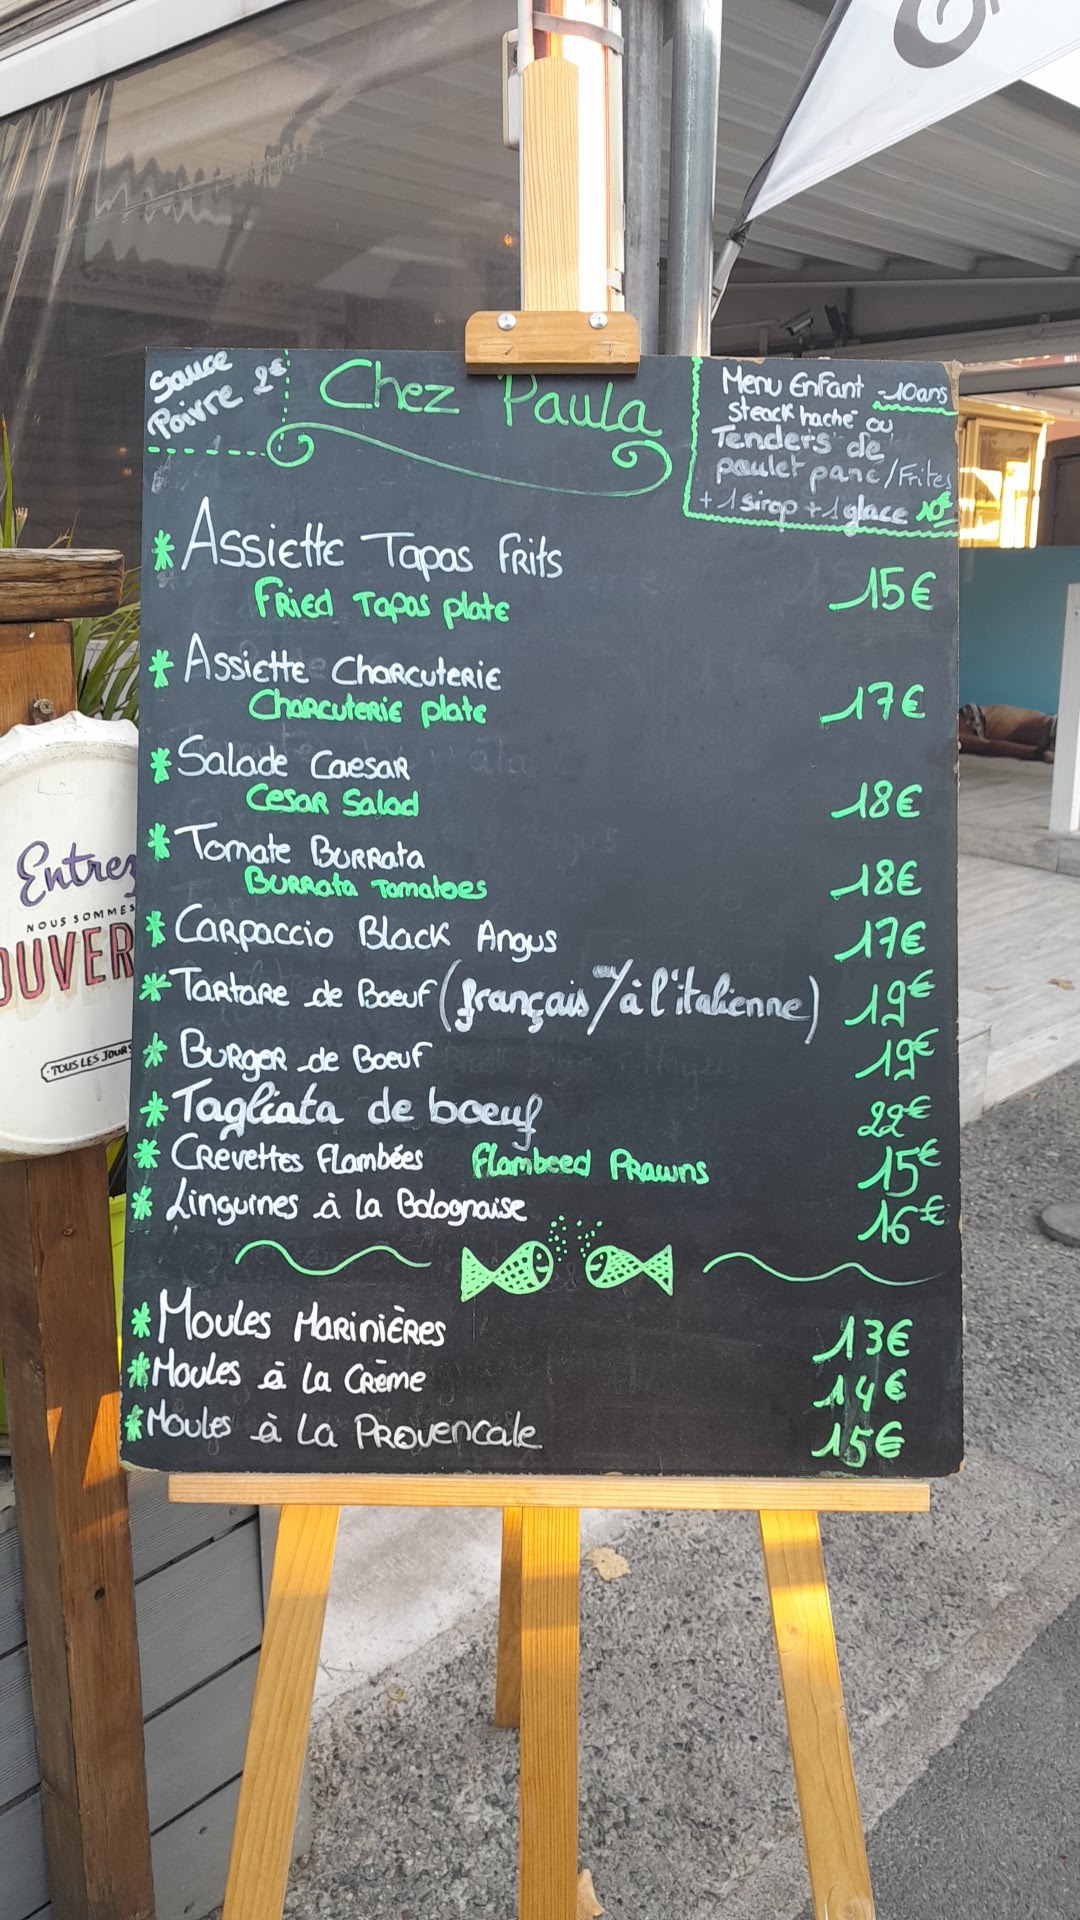 Sauce
Poivre 2€
Chez Paula
Menu Enfant -10ans
steack haché ou
Tenders de
poulet pané/Frites
+1 sirop +1 glace 10€
* Assiette Tapas frits
Fried Tapas plate 15€
* Assiette Charcuterie
Charcuterie plate 17€
* Salade Caesar
Cesar Salad 18€
* Tomate Burrata
Burrata Tomatoes 18€
* Carpaccio Black Angus 17€
* Tartare de Boeuf (français/à l'italienne) 19€
* Burger de Boeuf 19€
* Tagliata de boeuf 22€
* Crevettes Flambées Flambeed Prawns 15€
* Linguines à la Bolognaise 16€
* Moules Marinières 13€
* Moules à la Crème 14€
* Moules à la Provencale 15€
Entrez
NOUS SOMMES
OUVER
TOUS LES JOURS